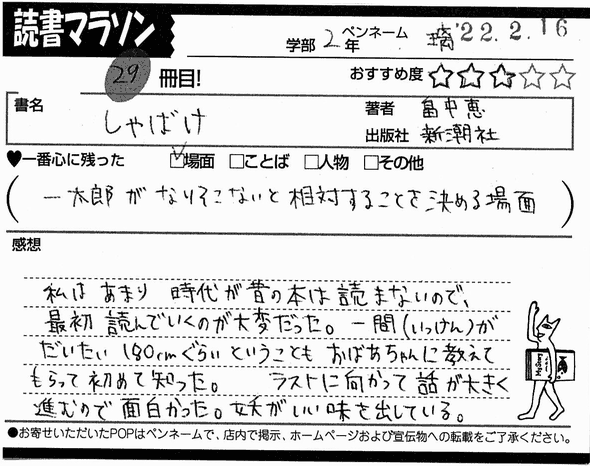 読書マラソン
学部 2年 ペンネーム 璃 '22.2.16
29冊目! おすすめ度 ☆☆☆☆☆
書名 しゃばけ
著者 畠中恵
出版社 新潮社
♥一番心に残った ☑場面 □ことば □人物 □その他
(一太郎がなりそこないと相対することを決める場面)
感想
私はあまり 時代が昔の本は読まないので、
最初 読んでいくのが大変だった。一間(いっけん)が
だいたい180cmぐらいということもおばあちゃんに教えて
もらって初めて知った。 ラストに向かって話が大きく
進むので面白かった。妖がいい味を出している。
●お寄せいただいたPOPはペンネームで、店内で掲示、ホームページおよび宣伝物への転載をご了承ください。